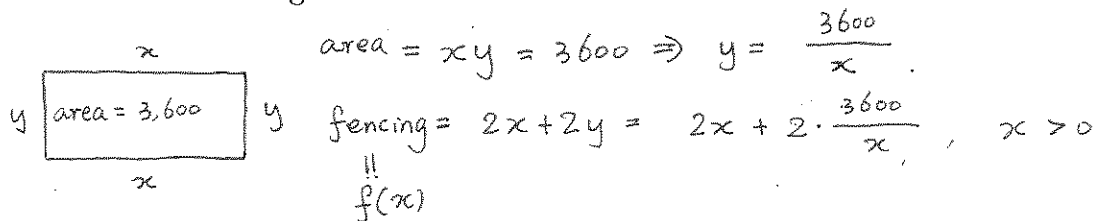 x
y area = 3,600 y
x
area = xy = 3600 ⇒ y = 3600/x.
fencing = 2x+2y = 2x + 2·3600/x, x > 0
||
f(x)